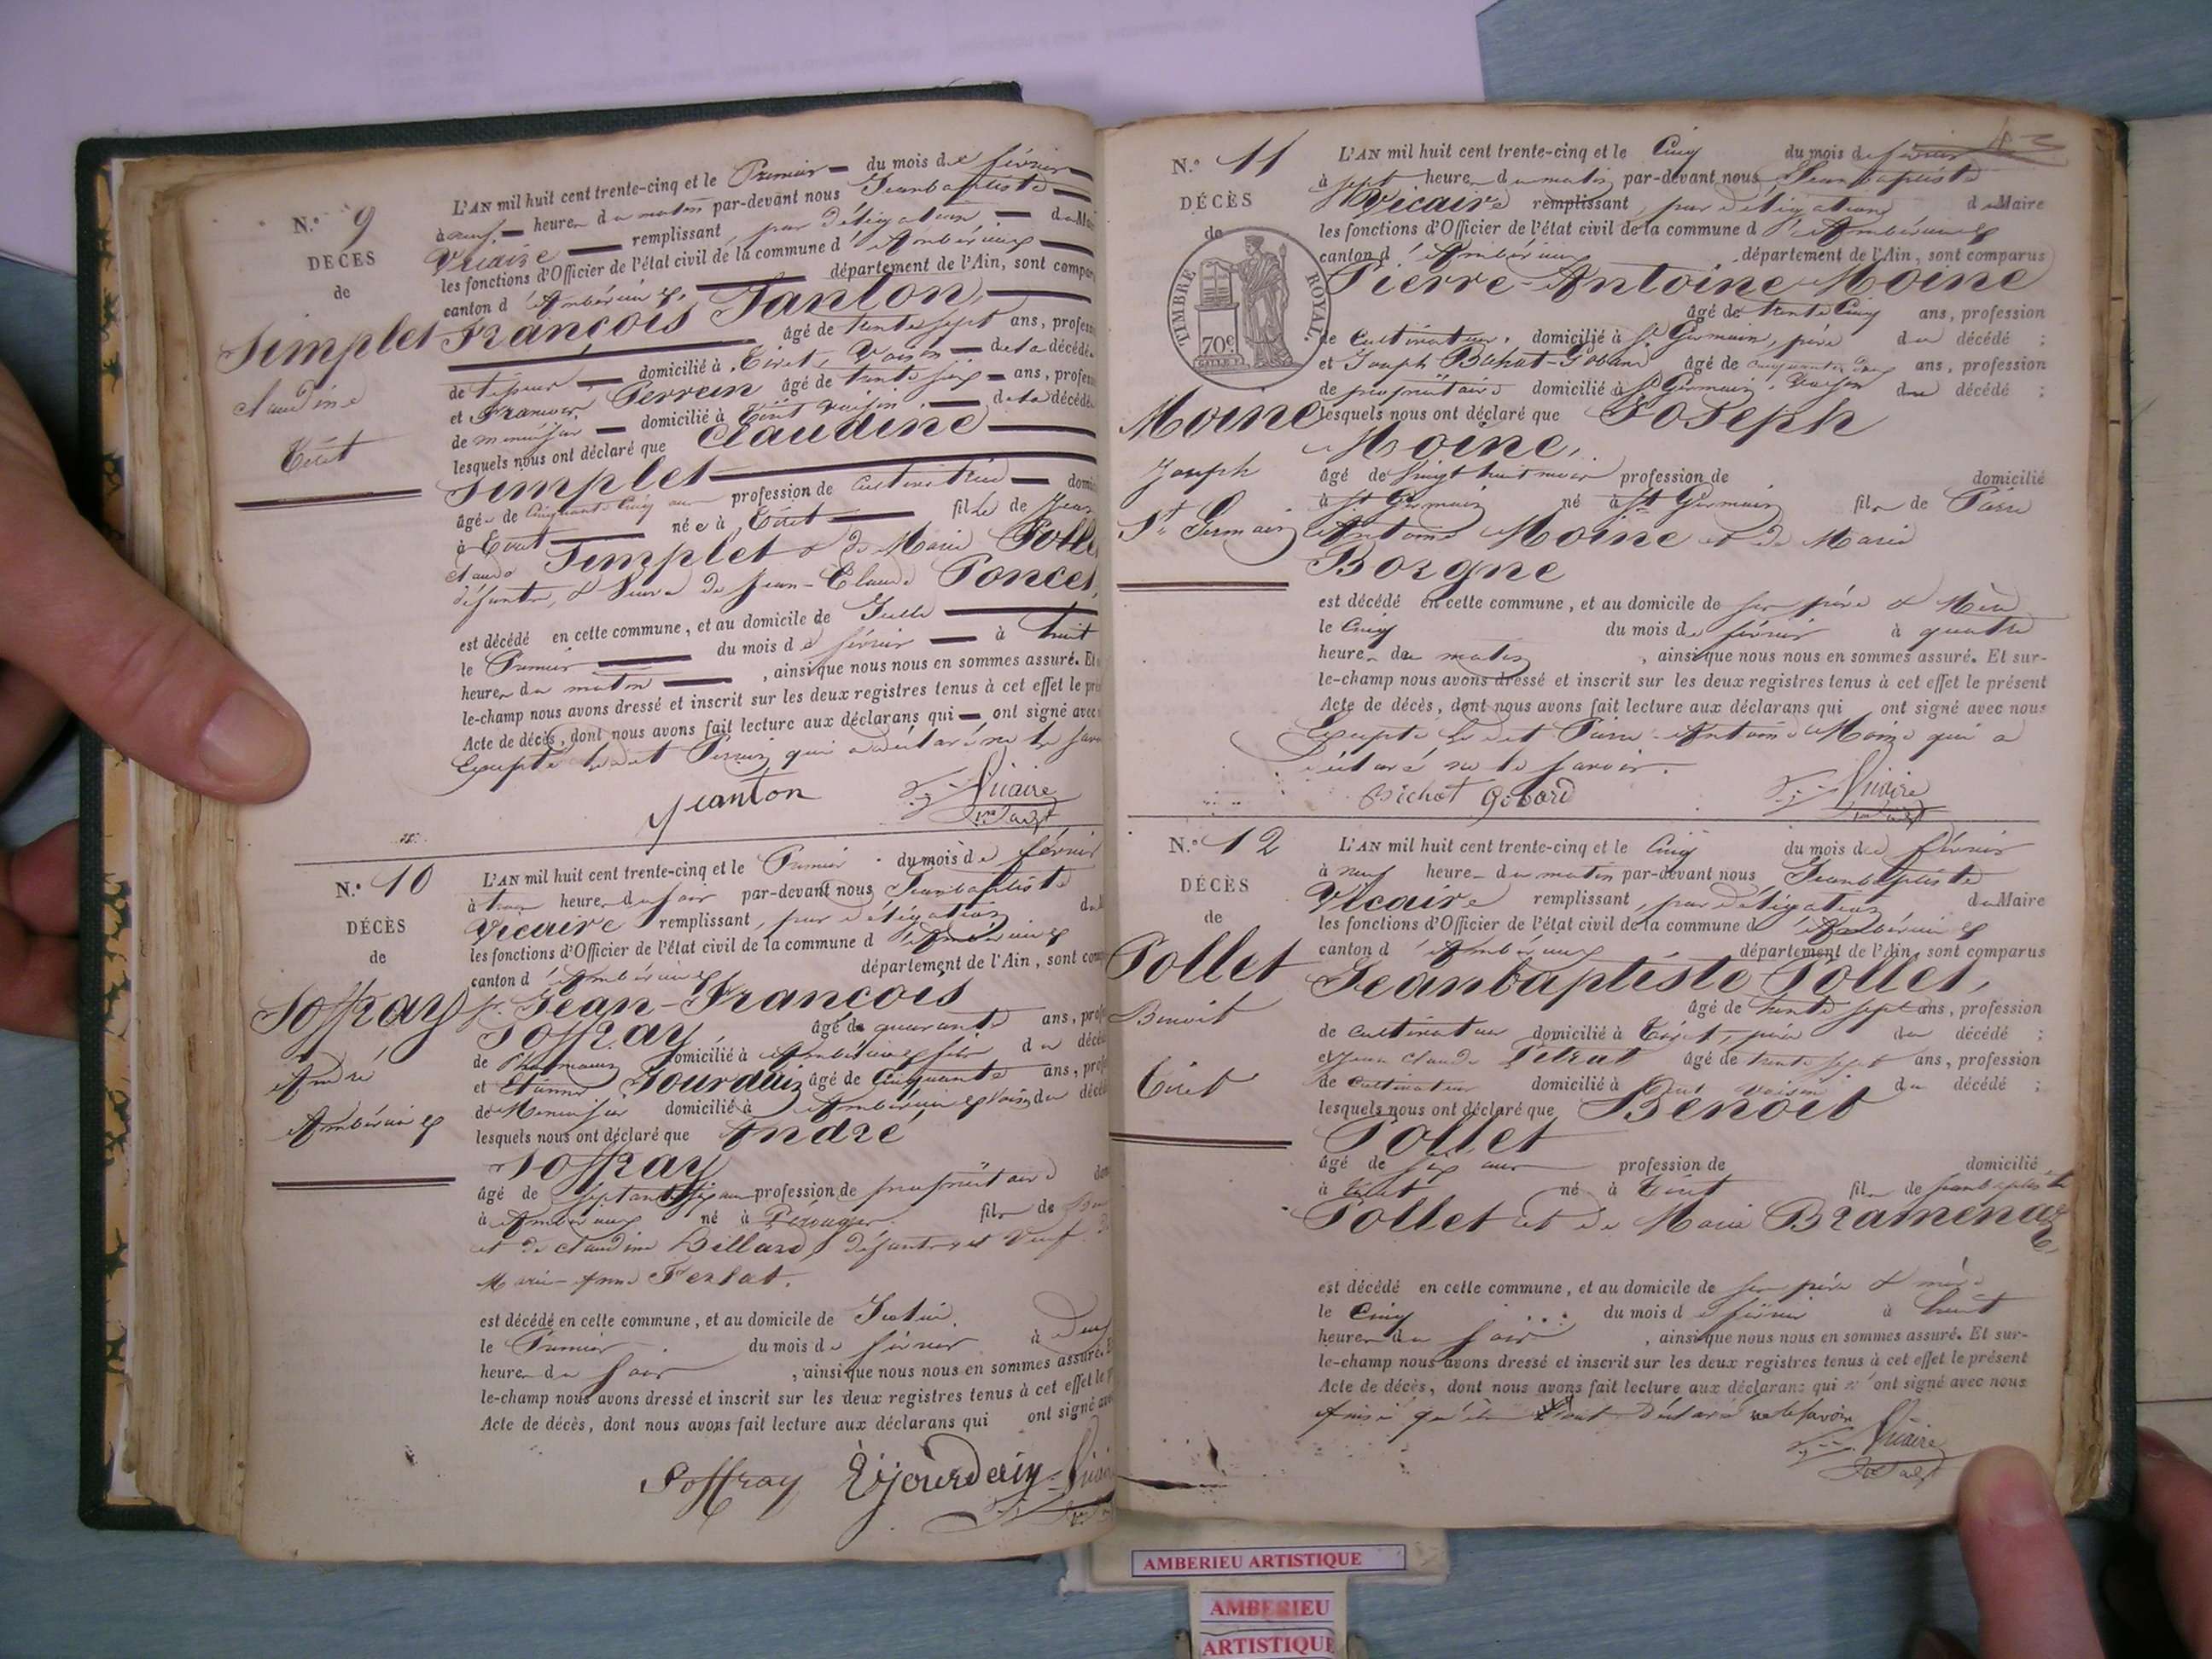 N.° 9
DÉCÈS
de
Simplet
Claudine
Tiret
L'AN mil huit cent trente-cinq et le Premier du mois de février
à neuf heures du matin par-devant nous Jeanbaptiste
Vicaire remplissant, par délégation du Mai
les fonctions d'Officier de l'état civil de la commune d'Ambérieux
canton d'Ambérieux, département de l'Ain, sont compar
François Janton,
âgé de trente sept ans, profess
de domicilié à Tiret, Voisin de la décédée
et Perrin âgé de trente six ans, profess
de menuisier domicilié à Tiret voisin de la décédée
lesquels nous ont déclaré que Claudine
Simplet
âgée de Cinquante Cinq ans profession de Cultivatrice domi
à Tiret née à Tiret fille de Jean
Claude Simplet & de Marie Poll
défunts, & Veuve de Jean-Claude Poncet,
est décédé en cette commune, et au domicile de Icelle
le Premier du mois de février à huit
heures du matin, ainsi que nous nous en sommes assuré. Et
le-champ nous avons dressé et inscrit sur les deux registres tenus à cet effet le pré
Acte de décès, dont nous avons fait lecture aux déclarans qui ont signé avec
Excepté ledit Perrin qui a déclaré ne le savo
Janton Vicaire
N.° 10
DÉCÈS
de
Soffray
André
Ambérieux
L'AN mil huit cent trente-cinq et le Premier du mois de février
à heures du soir par-devant nous Jeanbaptiste
Vicaire remplissant, par délégation du
les fonctions d'Officier de l'état civil de la commune d'Ambérieux
canton d'Ambérieux département de l'Ain, sont com
Jean-François
Soffray, âgé de quarante ans, prof
de Pharmacien domicilié à Ambérieux fils du décéd
et Etienne Jourdain âgé de Cinquante ans, prof
de Menuisier domicilié à Ambérieux voisin du décéd
lesquels nous ont déclaré que André
Soffray
âgé de septante six ans profession de propriétaire dom
à Ambérieux né à Pérouges fils de
et de Claudine Billard, défunts, et Veuf
Marie-Anne Ferlat.
est décédé en cette commune, et au domicile de Icelui.
le Premier du mois de février à deux
heures du soir, ainsi que nous nous en sommes assuré.
le-champ nous avons dressé et inscrit sur les deux registres tenus à cet effet le
Acte de décès, dont nous avons fait lecture aux déclarans qui ont signé ave
Soffray Ejourdain Vicai
N.° 11
DÉCÈS
de
TIMBRE ROYAL.
70c
Moine
Joseph
St. Germain
L'AN mil huit cent trente-cinq et le Cinq du mois de février
à sept heures du matin par-devant nous Jeanbaptiste
Vicaire remplissant, par délégation du Maire
les fonctions d'Officier de l'état civil de la commune d'Ambérieux
canton d'Ambérieux département de l'Ain, sont comparus
Pierre-Antoine Moine
âgé de trente Cinq ans, profession
de Cultivateur, domicilié à St Germain, père du décédé ;
et Joseph Bichat-Gobard âgé de cinquante deux ans, profession
de propriétaire domicilié à St Germain, Voisin du décédé ;
lesquels nous ont déclaré que Joseph
Moine,
âgé de Vingt huit mois profession de domicilié
à St Germain né à St Germain fils de Pierre
Antoine Moine et de Marie
Borgne
est décédé en cette commune, et au domicile de ses père & Mère
le Cinq du mois de février à quatre
heures du matin, ainsi que nous nous en sommes assuré. Et sur-
le-champ nous avons dressé et inscrit sur les deux registres tenus à cet effet le présent
Acte de décès, dont nous avons fait lecture aux déclarans qui ont signé avec nous
Excepté ledit Pierre-Antoine Moine qui a
déclaré ne le savoir.
Bichat Gobard Vicaire
N.° 12
DÉCÈS
de
Pollet
Benoit
Tiret
L'AN mil huit cent trente-cinq et le Cinq du mois de février
à neuf heures du matin par-devant nous Jeanbaptiste
Vicaire remplissant, par délégation du Maire
les fonctions d'Officier de l'état civil de la commune d'Ambérieux
canton d'Ambérieux département de l'Ain, sont comparus
Jeanbaptiste Pollet,
âgé de trente sept ans, profession
de cultivateur domicilié à Tiret, père du décédé ;
et Jean Claude Petrat âgé de trente sept ans, profession
de Cultivateur domicilié à Tiret voisin du décédé ;
lesquels nous ont déclaré que Benoit
Pollet
âgé de six ans profession de domicilié
à Tiret né à Tiret fils de Jeanbaptiste
Pollet et de Marie Bramenaz,
est décédé en cette commune, et au domicile de ses père & mère
le Cinq du mois de février à huit
heures du soir, ainsi que nous nous en sommes assuré. Et sur-
le-champ nous avons dressé et inscrit sur les deux registres tenus à cet effet le présent
Acte de décès, dont nous avons fait lecture aux déclarans qui n'ont signé avec nous
Ainsi qu'ils l'ont déclaré ne le savoir
Vicaire
AMBERIEU ARTISTIQUE
AMBERIEU
ARTISTIQUE